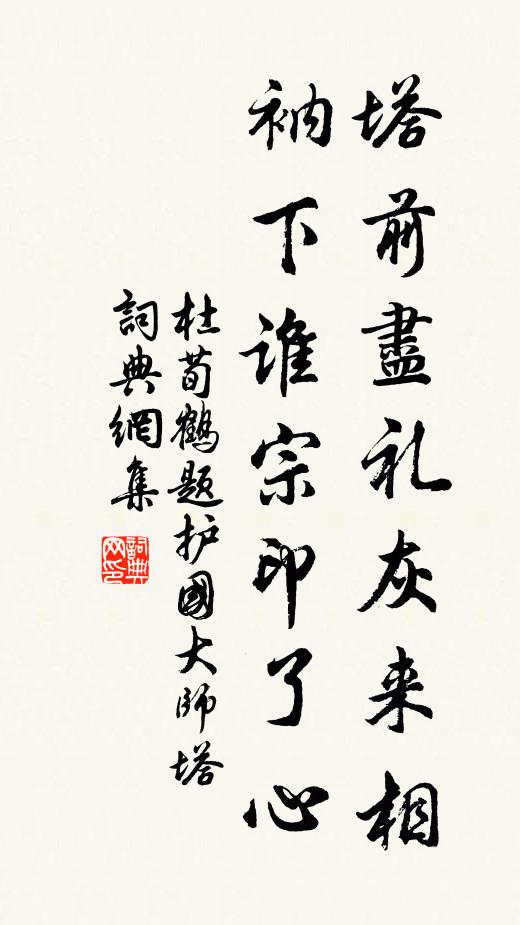 塔前盡礼灰来相
衲下谁宗印了心
杜荀鶴题护國大師塔
詞典網集
詞典网印